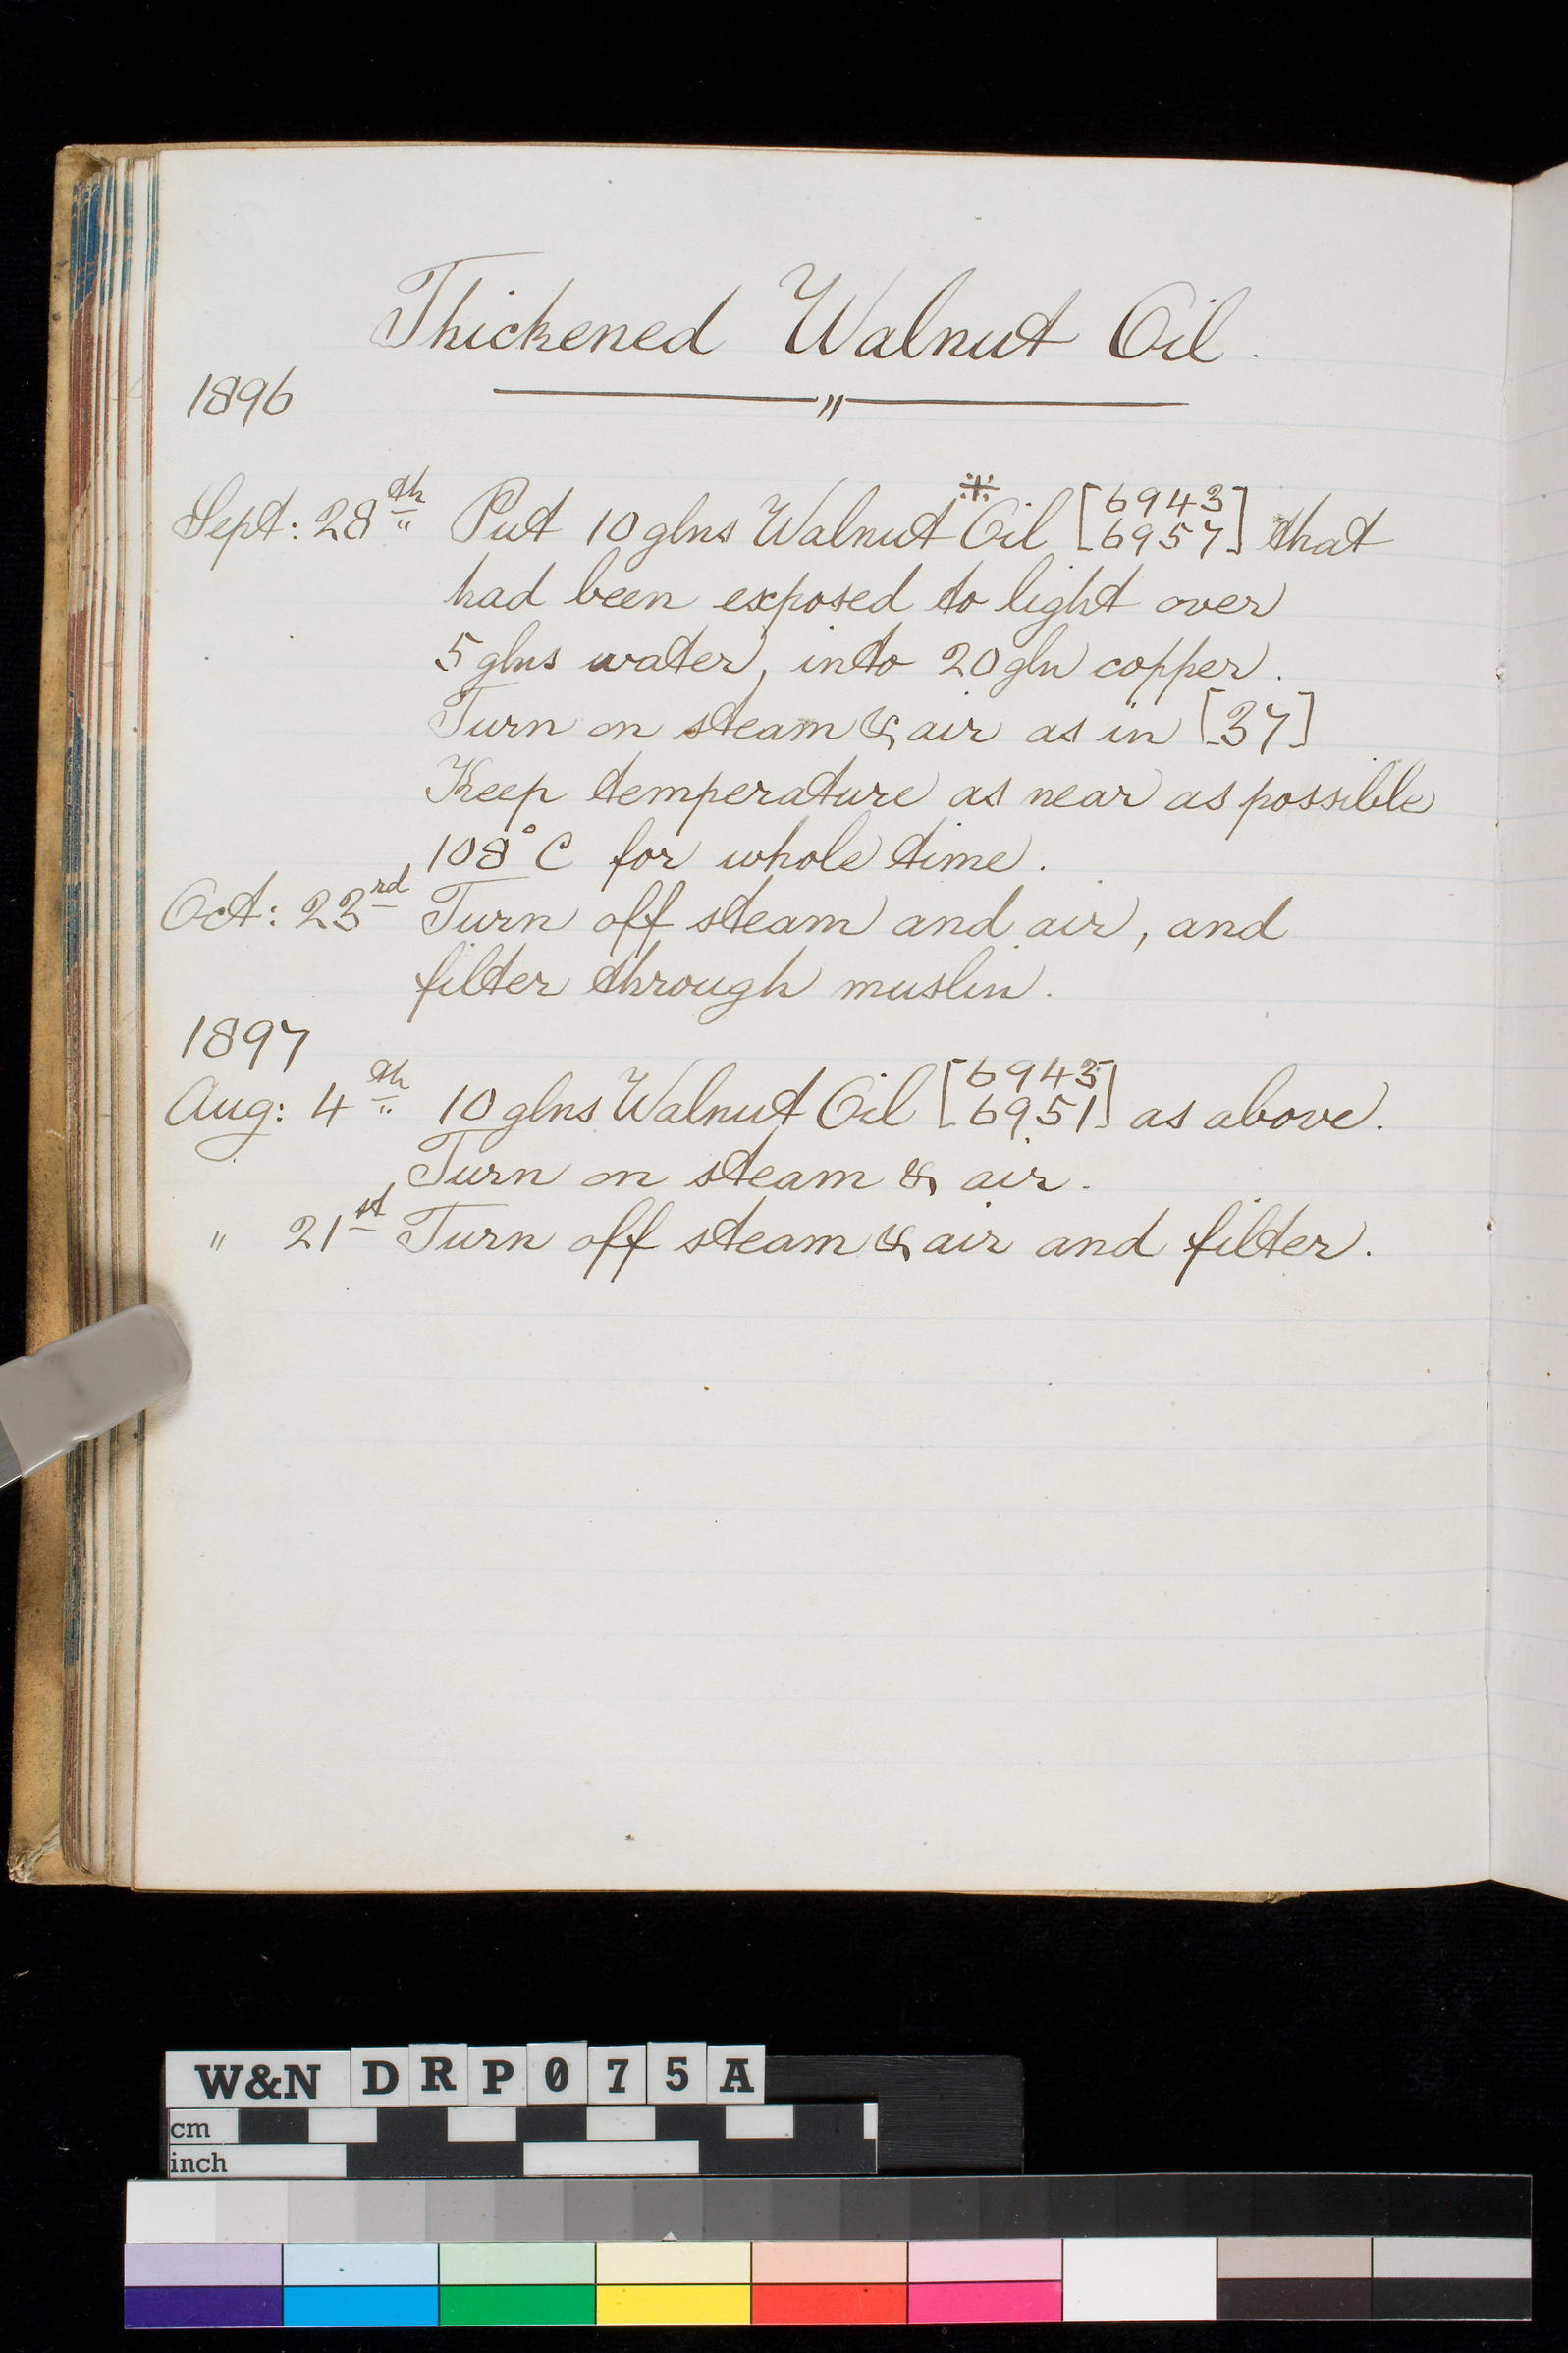 Thickened Walnut Oil.
"
1896
Sept: 28th Put 10 glns Walnut Oil [6943 that
6957]
had been exposed to light over
5 glns water, into 20 gln copper.
Turn on steam & air as in [37]
Keep temperature as near as possible
108° C for whole time.
Oct: 23rd Turn off steam and air, and
filter through muslin.
1897
Aug: 4th 10 glns Walnut Oil [6943 as above.
6951]
Turn on steam & air.
" 21st Turn off steam & air and filter.
W&N DRP075A
cm
inch